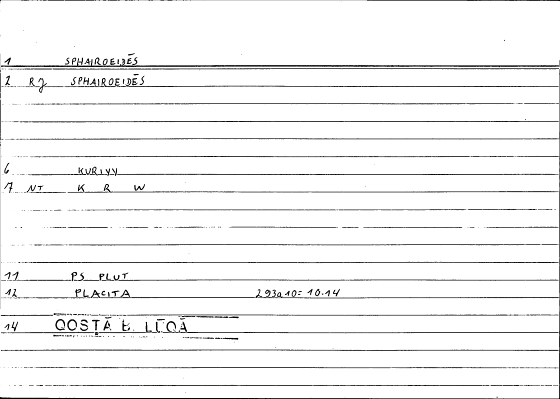 1 SPHAIROEIDĒS
2 RJ SPHAIROEIDĒS
6 KURIYY
7 NT K R W
11 PS PLUT
12 PLACITA 293a10 = 10.14
14 QOSṬĀ B. LŪQĀ